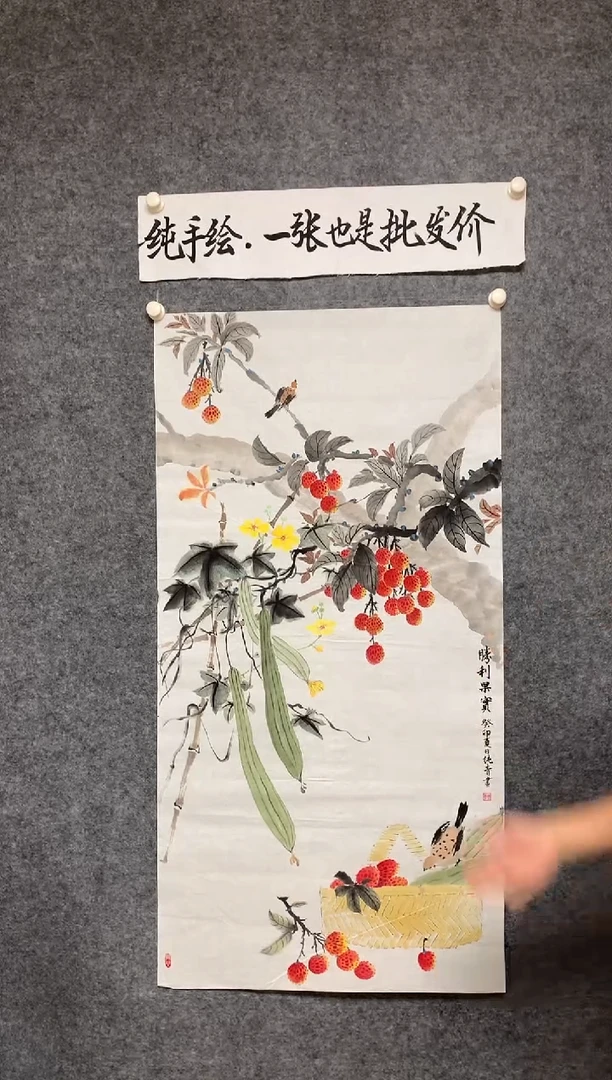 纯手绘.一张也是批发价
勝利果實
癸卯夏月